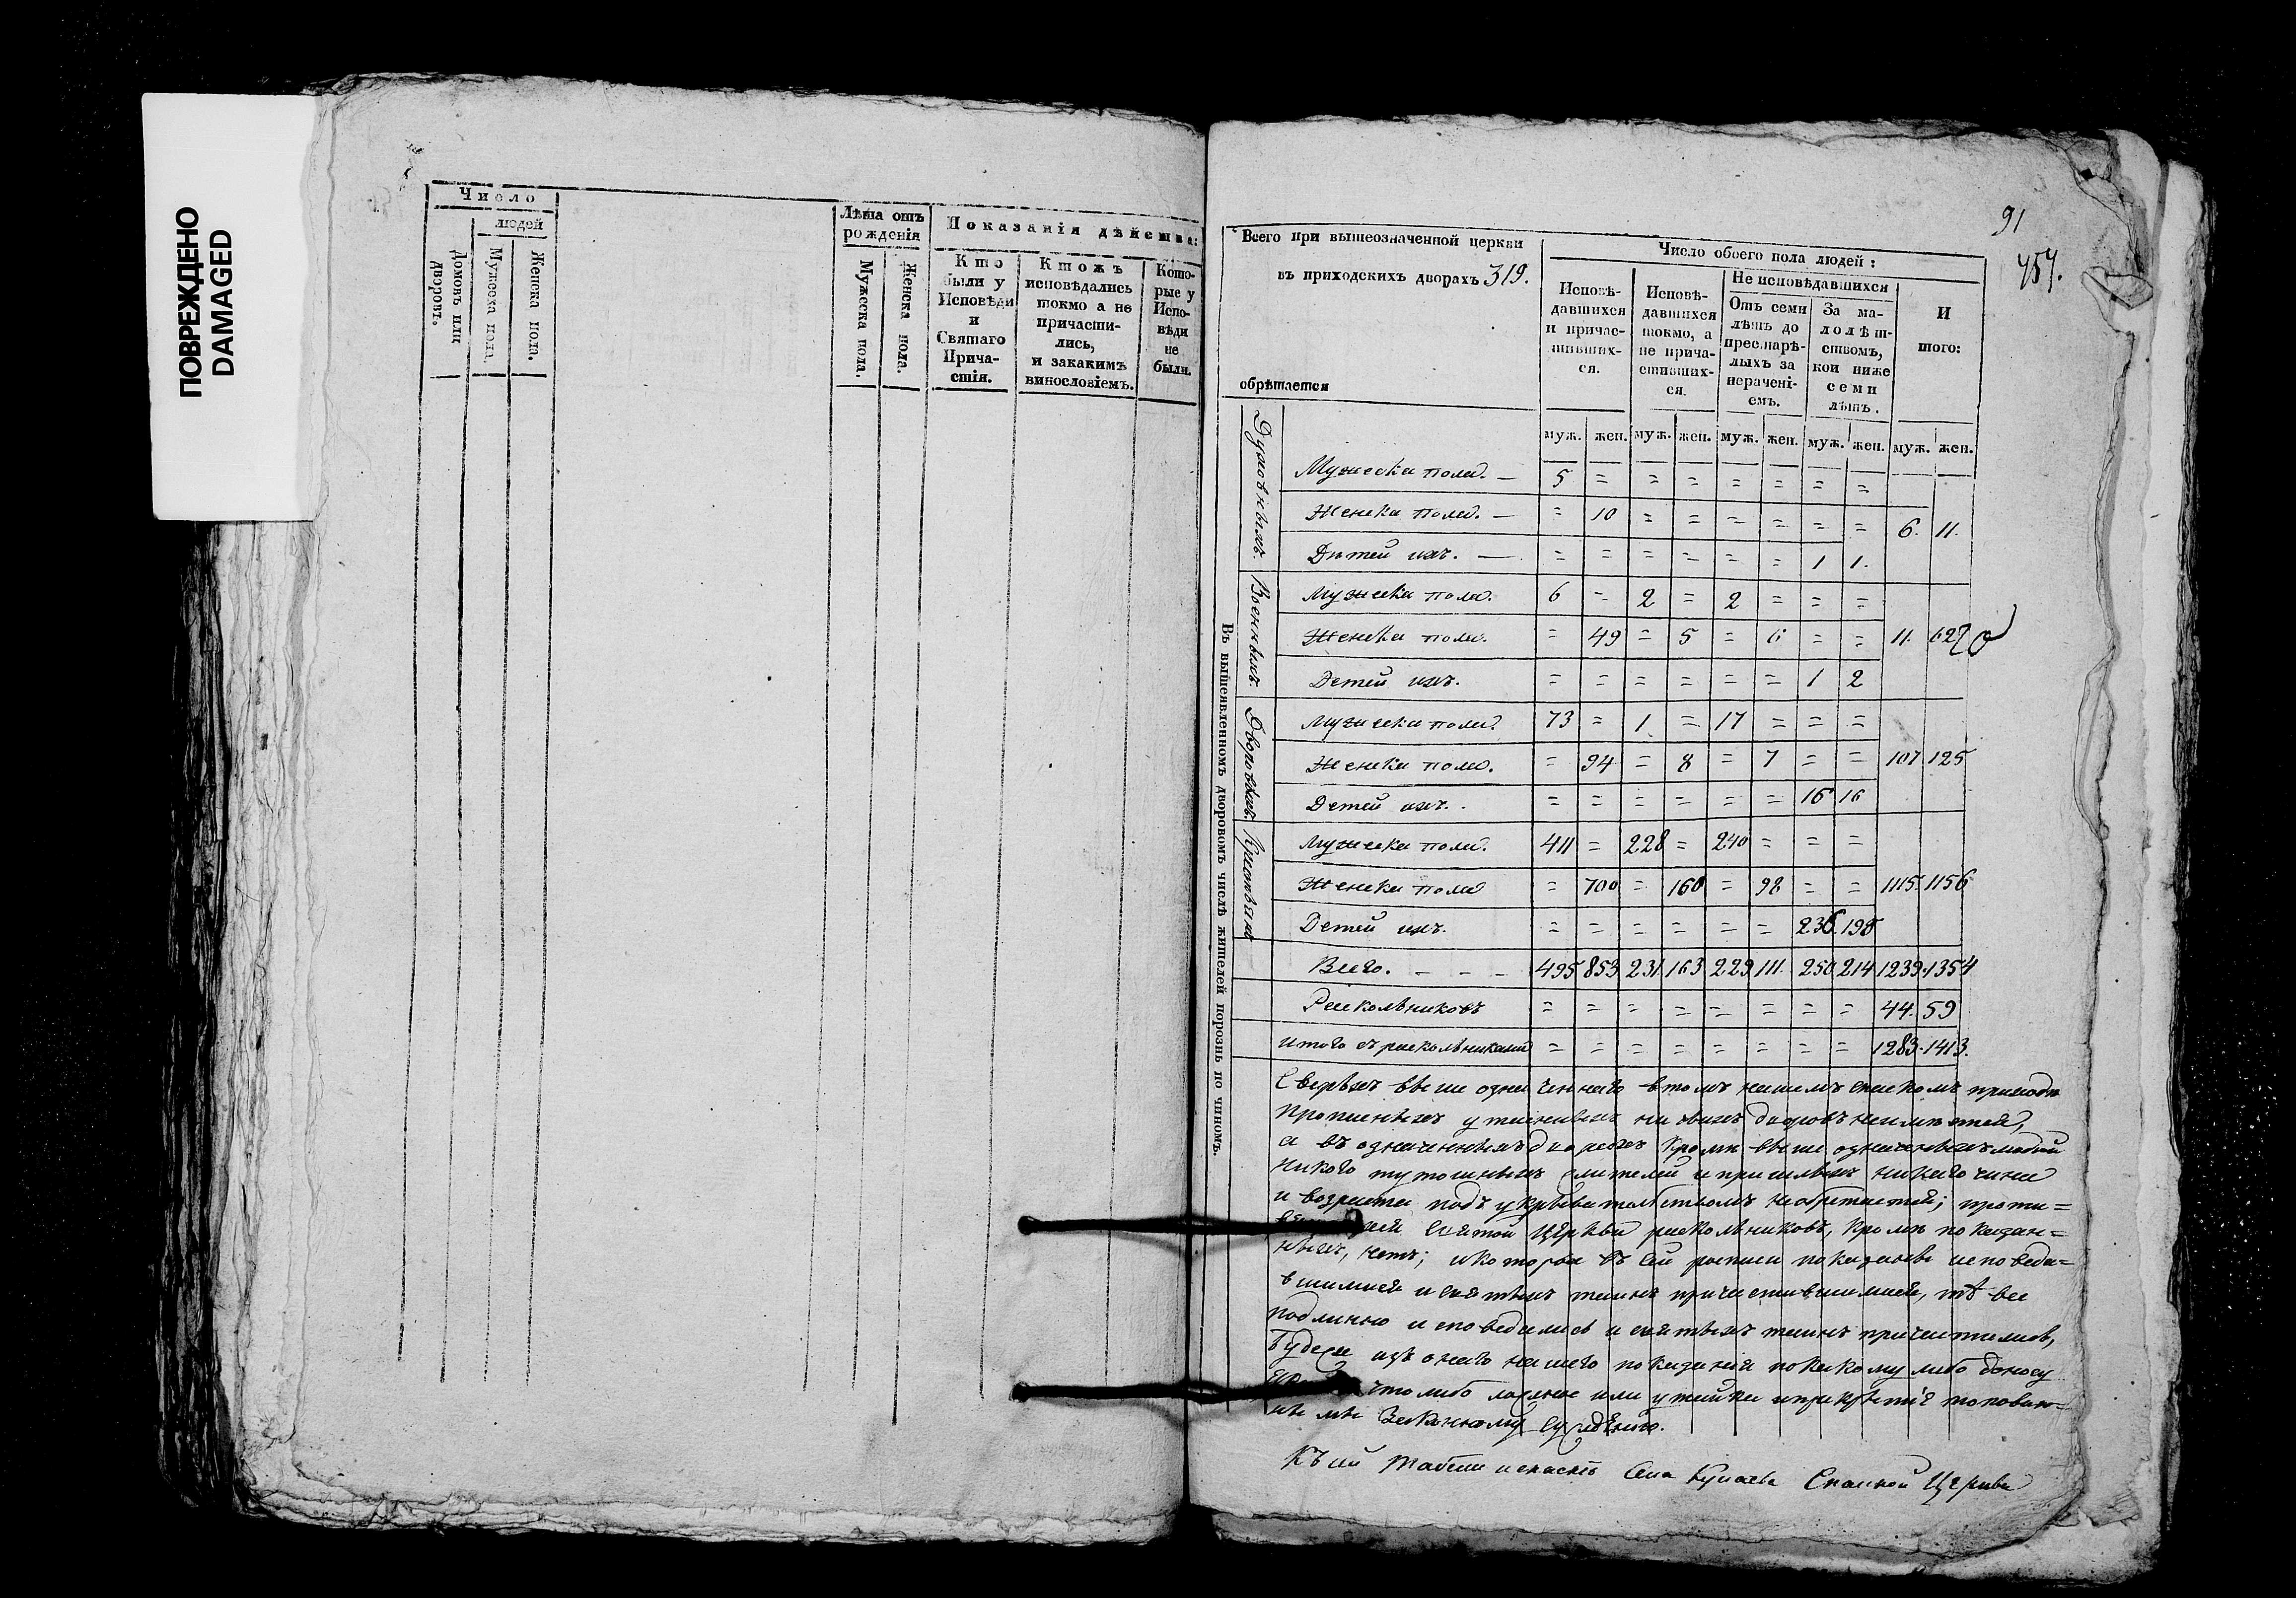 ПОВРЕЖДЕНО
DAMAGED
Число
людей
Домовъ или дворовъ.
Мужеска пола.
Женска пола.
Лѣта отъ рожденія
Мужеска пола.
Женска пола.
Показанія дѣйства:
Кто были у Исповѣди и Святаго Причастія.
Ктожъ исповѣдались токмо а не причастились, и закакимъ винословіемъ.
Которые у Исповѣди не были.
91
Всего при вышеозначенной церкви
въ приходскихъ дворахъ 319.
обрѣтается
Число обоего пола людей:
Исповѣдавшихся и причастившихся.
Исповѣдавшихся токмо, а не причастившихся.
Не исповѣдавшихся
Отъ семи лѣтъ до престарѣлыхъ за нераченіемъ.
За малолѣтствомъ, кои ниже семи лѣтъ.
Итого:
муж. жен. муж. жен. муж. жен. муж. жен. муж. жен.
Въ вышеявленномъ дворовомъ числѣ жителей порознь по чиномъ.
Духовныхъ.
Мужеска пола. — 5 = = = = = = =
Женска пола. — = 10 = = = = = = 6. 11.
Дѣтей ихъ. — = = = = = = 1 1.
Военныхъ.
Мужеска пола. 6 = 2 = 2 = = =
Женска пола. = 49 = 5 = 6 = = 11. 62
Детей ихъ. = = = = = = 1 2
Дворовыхъ.
Мужеска пола. 73 = 1 = 17 = = =
Женска пола. = 94 = 8 = 7 = = 107 125
Детей ихъ. = = = = = = 16 16
Крестьянъ
Мужеска пола. 411 = 228 = 240 = = =
Женска пола = 700 = 160 = 98 = = 1115 1156
Детей ихъ. = = = = = = 236. 198
Всего. - - - 495 853 231 163 229 111. 250 214 1239. 1354
Раскольниковъ = = = = = = = = 44. 59
итого съ раскольниками = = = = = = = = 1283. 1413.
Сверхъ выше означеннаго въ томъ нашемъ приходе
а въ означенныхъ дворехъ кроме выше означенныхъ людей
никого тутошныхъ жителей и пришлыхъ никакого чина
и возраста подъ укрывательствомъ необретается; проти=
святой Церкви раскольниковъ, кроме показан=
ныхъ, нетъ; и которые въ сей росписи показаны исповеда=
вшимися и святыхъ таинъ причастившимися, те все
подлинно исповедались и святыхъ таинъ причастились,
Будеже изъ онаго нашего показания по какому либо доносу
что либо ложное или утайка и прикрытіе то повин=
ны мы Законному сужденію.
Къ сей села Спаской Церкви